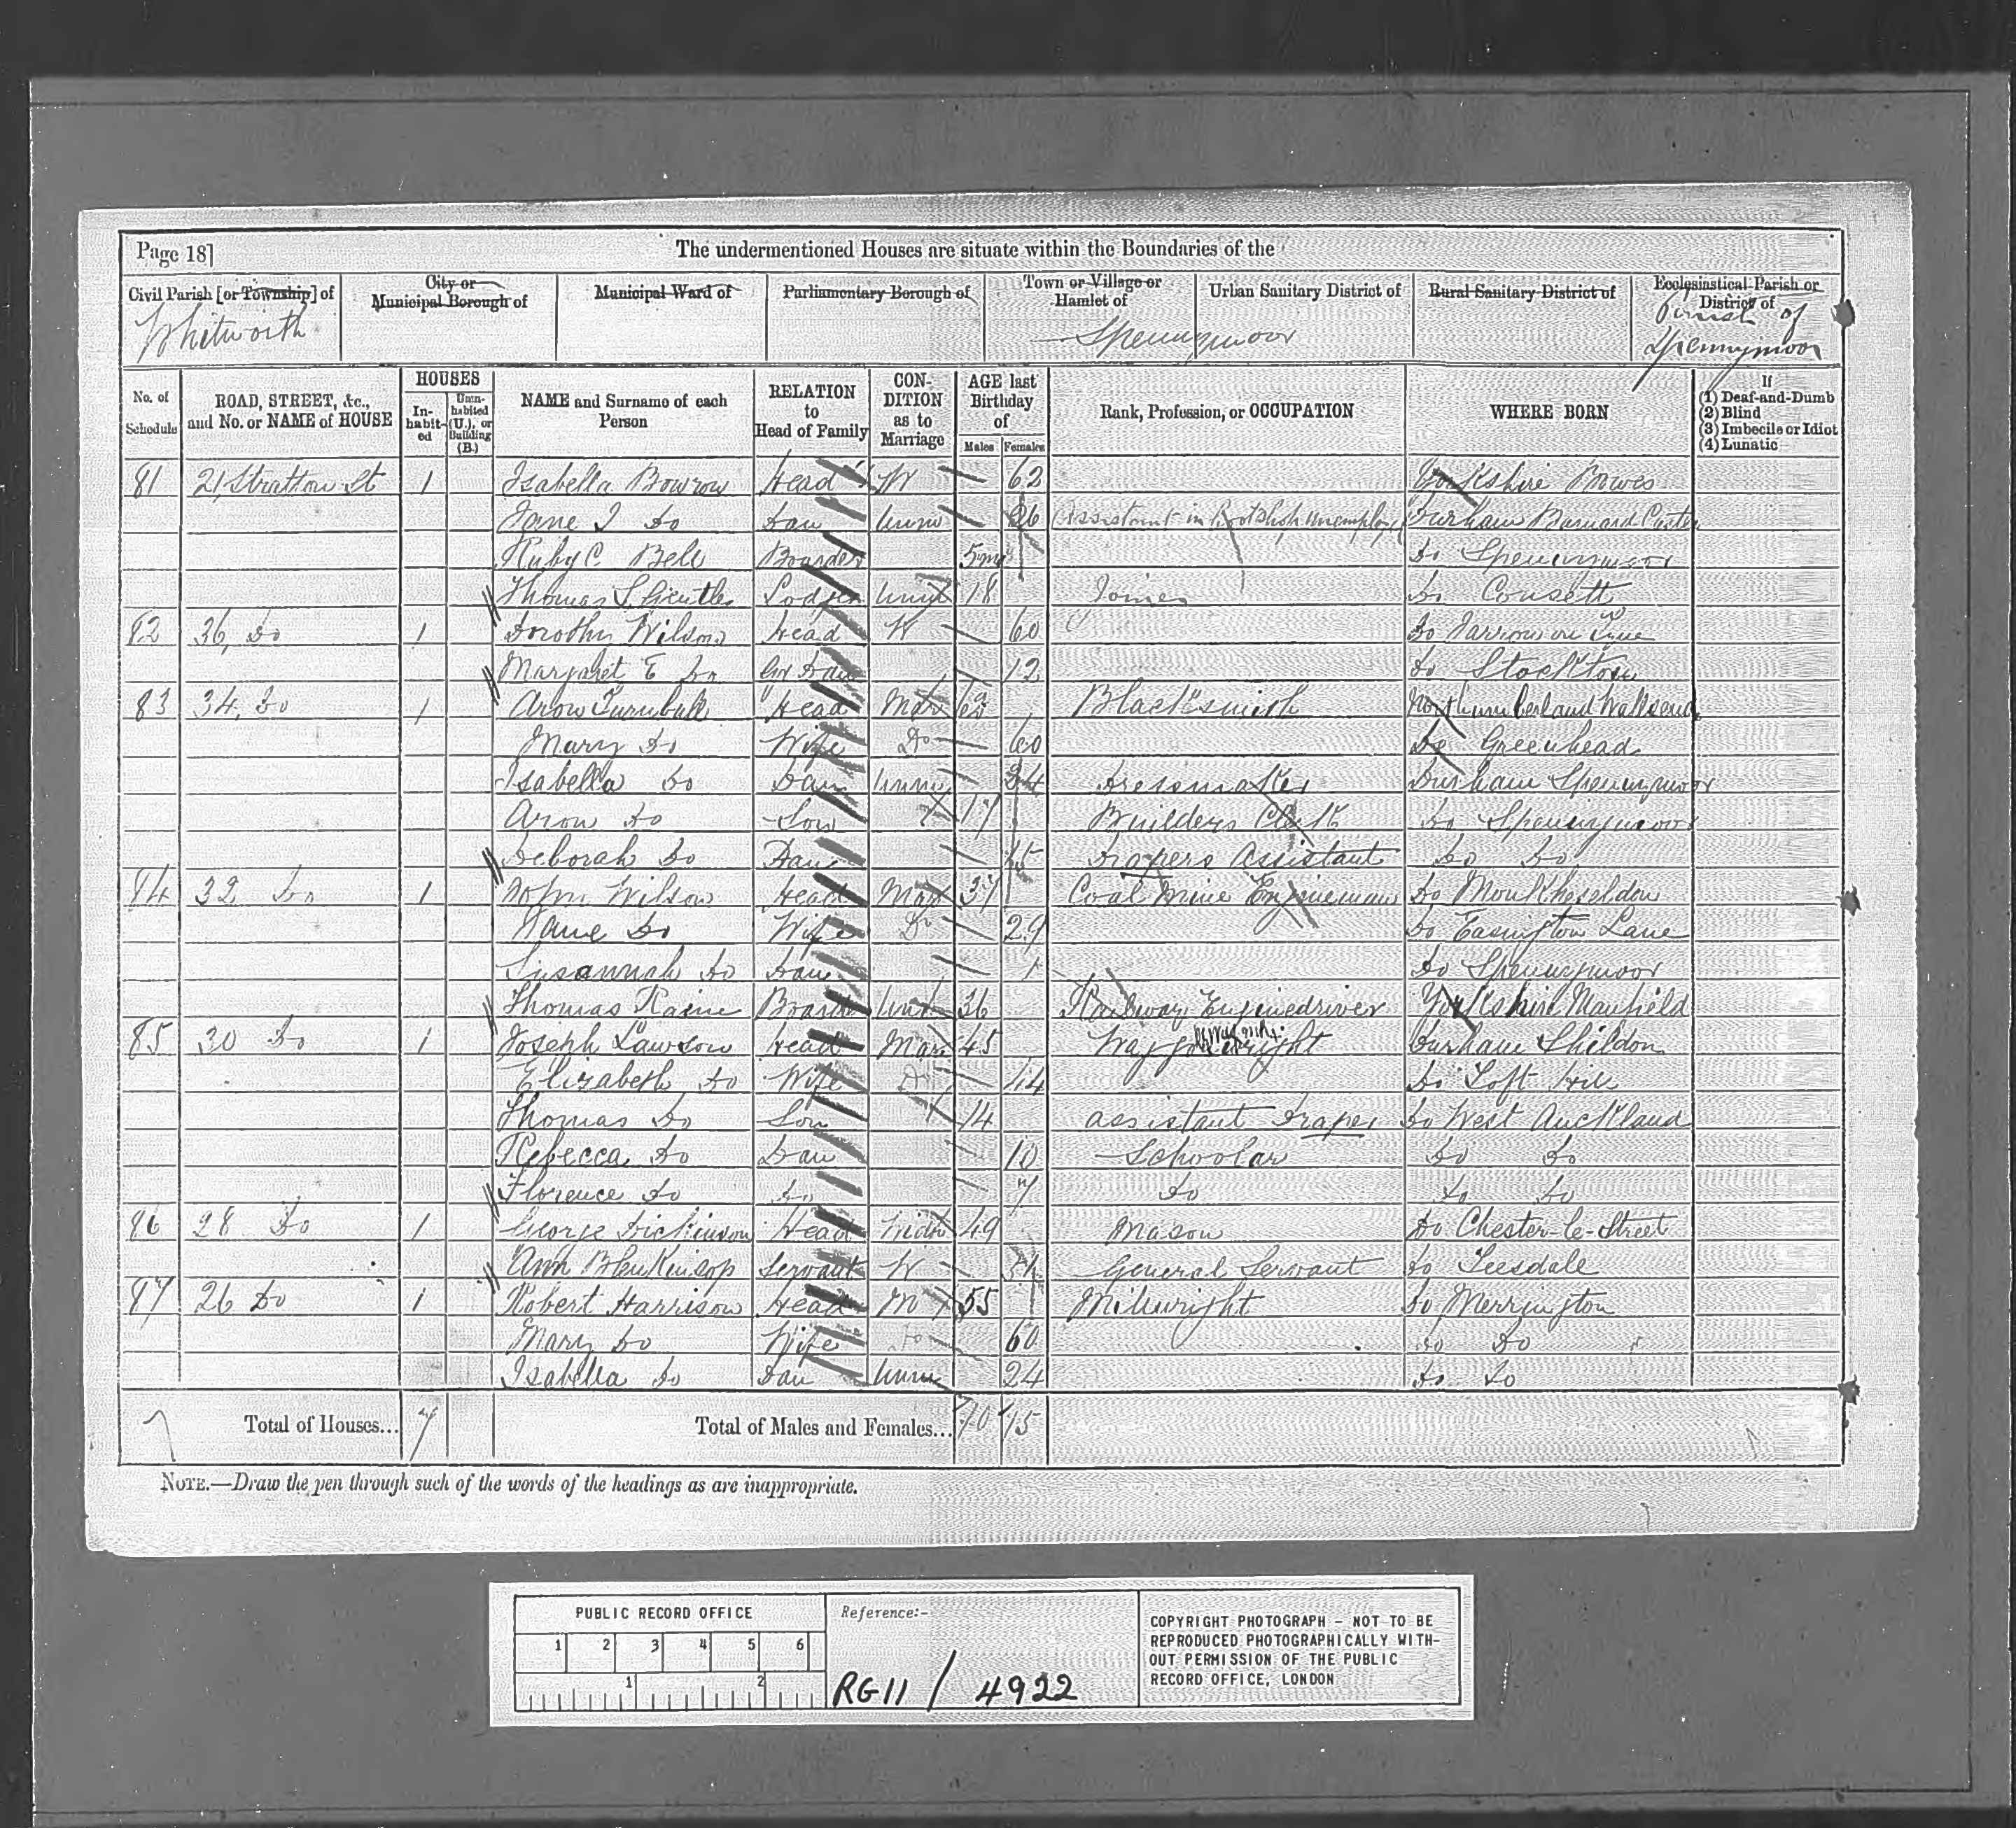 Page 18]
The undermentioned Houses are situate within the Boundaries of the
Civil Parish [or Township] of
Whitworth
City or
Municipal Borough of
Municipal Ward of
Parliamentary Borough of
Town or Village or
Hamlet of
Spennymoor
Urban Sanitary District of
Rural Sanitary District of
Ecclesiastical Parish or
District of
Parish of
Spennymoor
No. of
Schedule
ROAD, STREET, &c.,
and No. or NAME of HOUSE
HOUSES
In-
habit-
ed
Unin-
habited
(U.), or
Building
(B.)
NAME and Surname of each
Person
RELATION
to
Head of Family
CON-
DITION
as to
Marriage
AGE last
Birthday
of
Males Females
Rank, Profession, or OCCUPATION
WHERE BORN
If
(1) Deaf-and-Dumb
(2) Blind
(3) Imbecile or Idiot
(4) Lunatic
81 21 Stratton St 1 Isabella Bowrow Head W 62 Yorkshire Bowes
Jane I Do Dau Unm 26 Assistant in Unemployed Durham Barnard Castle
Ruby C. Bell Boarder 5m Do Spennymoor
Thomas Lodger Unm 18 Joiner Do Consett
82 36, Do 1 Dorothy Wilson Head W 60 Do Jarrow on Tyne
Margaret E Do Gr Dau 12 Do Stockton
83 34, Do 1 Aron Turnbull Head Mar Blacksmith Northumberland Wallsend
Mary Do Wife Do 60 Do Greenhead
Isabella Do Dau Unm 24 Dressmaker Durham Spennymoor
Aron Do Son 17 Builders Clerk Do Spennymoor
Deborah Do Dau 15 Drapers Assistant Do Do
84 32 Do 1 John Wilson Head Mar 37 Coal Mine Engineman Do Monkheseldon
Jane Do Wife Do 29 Do Easington Lane
Susannah Do Dau 1 Do Spennymoor
Thomas Raine Boarder Unm 36 Railway Enginedriver Yorkshire Manfield
85 30 Do 1 Joseph Lawson Head Mar 45 Durham Shildon
Elizabeth Do Wife Do 44 Do Toft Hill
Thomas Do Son 14 Assistant Draper Do West Auckland
Rebecca Do Dau 10 Schoolar Do Do
Florence Do Do 7 Do Do Do
86 28 Do 1 George Dickinson Head 49 Mason Do Chester-le-Street
Ann Blenkinsop Servant W General Servant Do Teesdale
87 26 Do 1 Robert Harrison Head M 55 Millwright Do Merrington
Mary Do Wife Do 60 Do Do
Isabella Do Dau Unm 24 Do Do
7 Total of Houses... 7 Total of Males and Females... 10 15
NOTE.—Draw the pen through such of the words of the headings as are inappropriate.
PUBLIC RECORD OFFICE
1 2 3 4 5 6
1 2
Reference:-
RG 11 / 4922
COPYRIGHT PHOTOGRAPH - NOT TO BE
REPRODUCED PHOTOGRAPHICALLY WITH-
OUT PERMISSION OF THE PUBLIC
RECORD OFFICE, LONDON